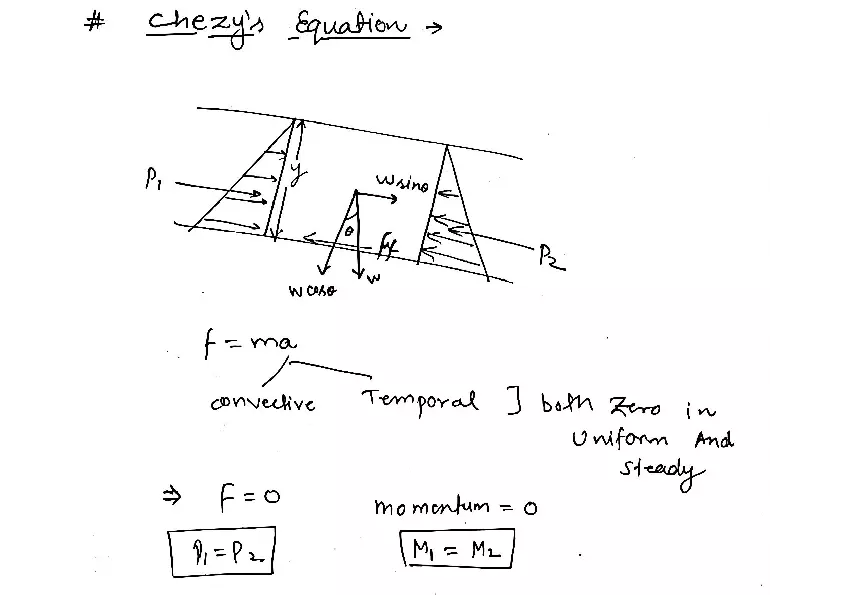 # Chezy's Equation →
P1
y
wsinθ
θ
Ff
P2
wcosθ
w
f = ma
convective Temporal ] both Zero in
Uniform And
Steady
⇒ F = 0 momentum = 0
P1 = P2 M1 = M2